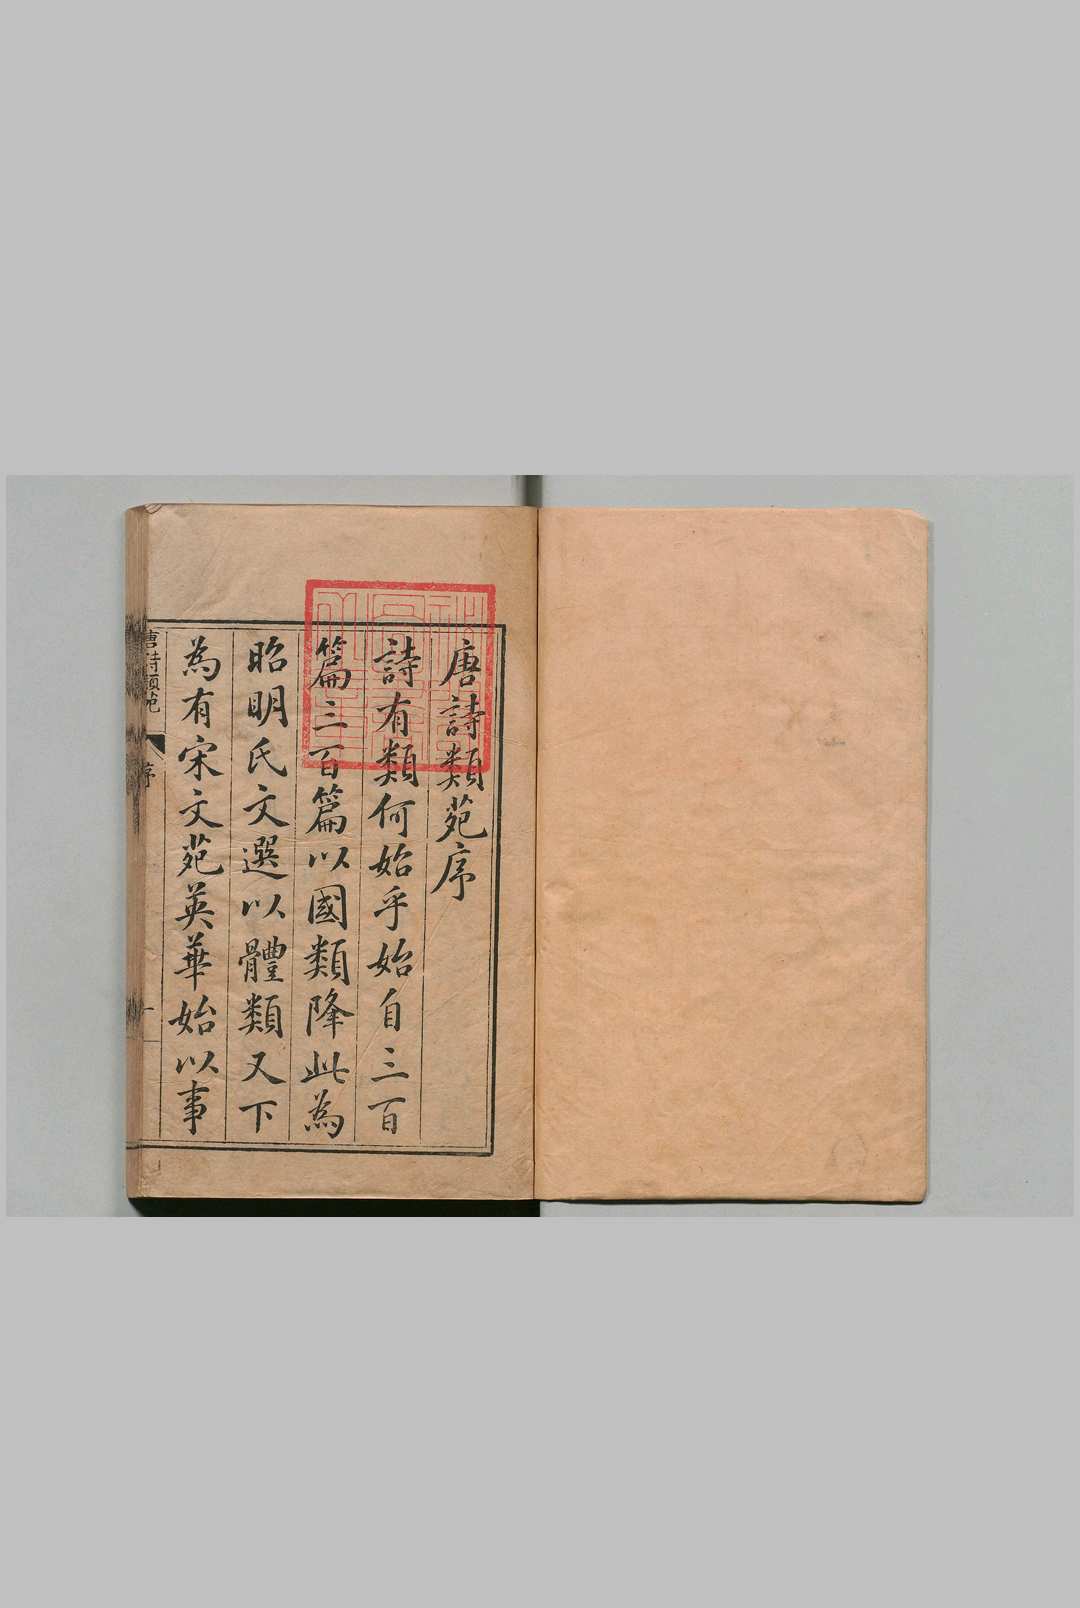 唐詩類苑序
詩有類何始乎始自三百
篇三百篇以國類降此為
昭明氏文選以體類又下
為有宋文苑英華始以事
唐詩類苑
序
一